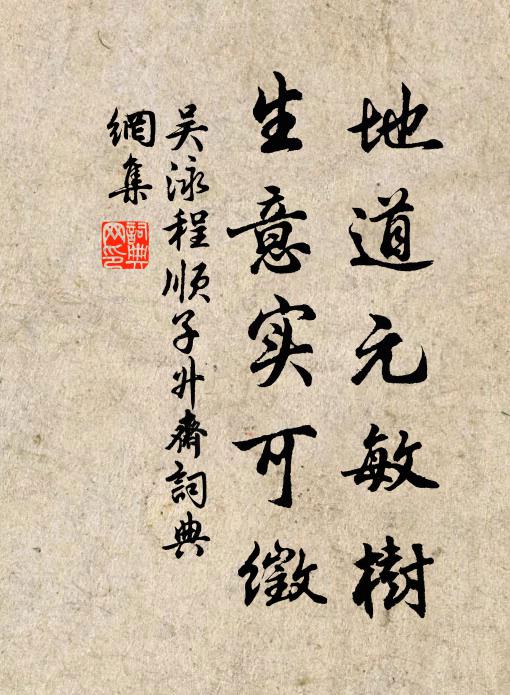 地道元敏樹
生意实可徵
吴泳程順子升齋詞典
網集
詞典
网印